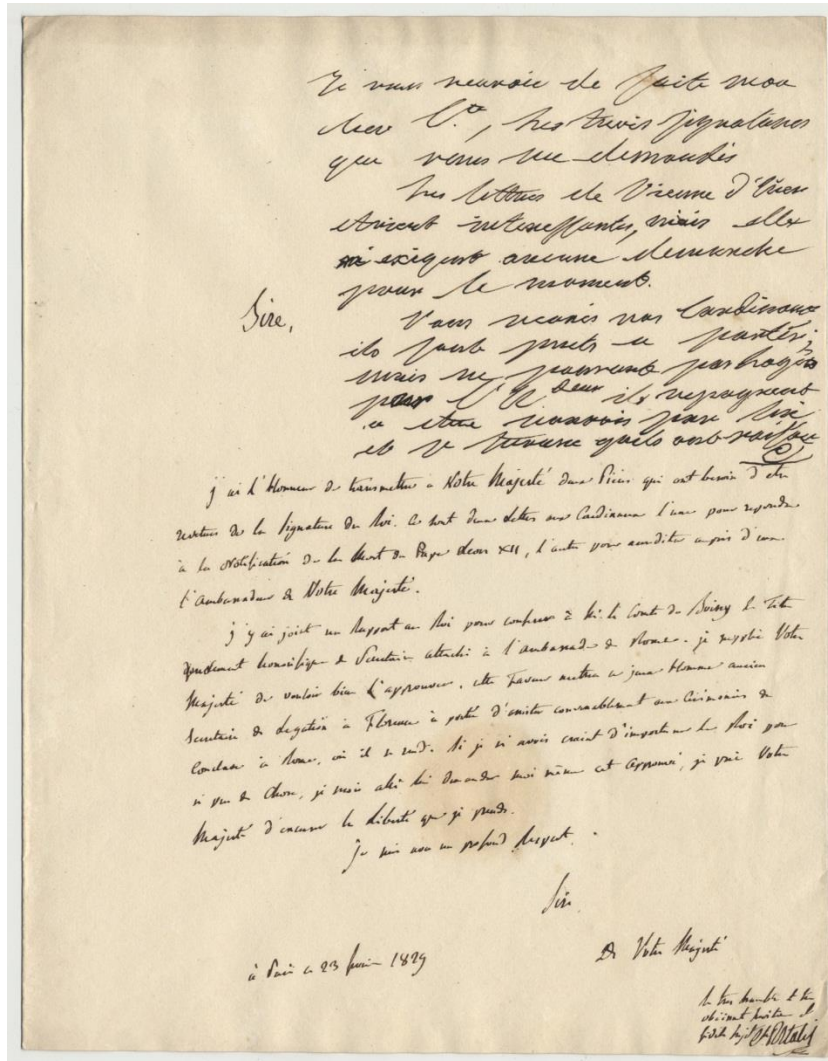 Je vous renvoie de suite mon
cher Cte, les trois signatures
que vous me demandés
Les lettres de Vienne d'hier
etoient interessantes, mais elles
n'exigent aucune demarche
pour le moment.
Vous verrés nos Cardinaux
ils sont prets a partir,
mais ne pouvant pas
pour ils repugnent
a etre par
et je trouve quils ont raison
Sire,
j'ai l'honneur de transmettre a Votre Majesté deux Pieces qui ont besoin d'etre
revetues de la Signature du Roi. Ce sont deux Lettres aux Cardinaux l'une pour repondre
à la Notification de la Mort du Pape Leon XII, l'autre pour accréditer auprès d'eux
l'Ambassadeur de Votre Majesté.
j'y ai joint un Rapport au Roi pour conferer à Mr. le Comte de Boissy le Titre
purement honorifique de Secretaire attaché à l'ambassade de Rome. je supplie Votre
Majesté de vouloir bien l'approuver. cette faveur mettra ce jeune Homme ancien
Secretaire de Legation à Florence à porté d'assister convenablement aux Cérémonies du
Conclave à Rome, où il se rend. Si je n'avois craint d'importuner le Roi pour
si peu de chose, je serois allé lui demander moi même cet approuvé, je prie Votre
Majesté d'excuser la liberté que je prends.
Je suis avec un profond Respect.
Sire
De Votre Majesté
à Paris ce 23 fevrier 1829
le tres humble et tres
obéissant serviteur et
fidele sujet Cte Portalis